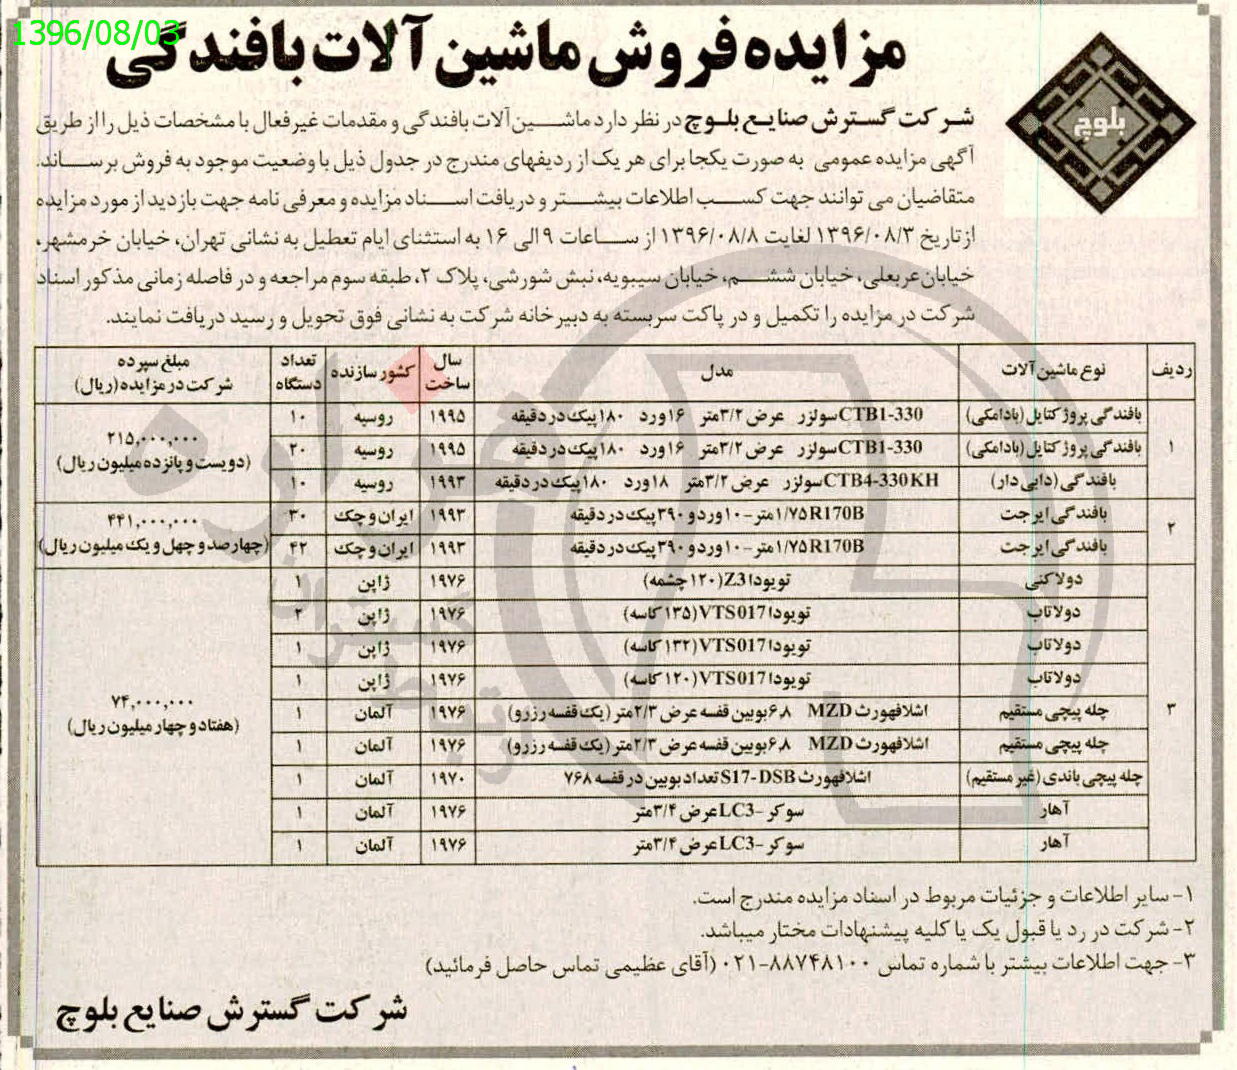 1396/08/03
مزایده فروش ماشین آلات بافندگی
بلوچ
شرکت گسترش صنایع بلوچ در نظر دارد ماشین آلات بافندگی و مقدمات غیرفعال با مشخصات ذیل را از طریق
آگهی مزایده عمومی به صورت یکجا برای هر یک از ردیفهای مندرج در جدول ذیل با وضعیت موجود به فروش برساند.
متقاضیان می توانند جهت کسب اطلاعات بیشتر و دریافت اسناد مزایده و معرفی نامه جهت بازدید از مورد مزایده
از تاریخ ۱۳۹۶/۰۸/۳ لغایت ۱۳۹۶/۰۸/۸ از ساعات ۹ الی ۱۶ به استثنای ایام تعطیل به نشانی تهران، خیابان خرمشهر،
خیابان عربعلی، خیابان ششم، خیابان سیبویه، نبش شورشی، پلاک ۲، طبقه سوم مراجعه و در فاصله زمانی مذکور اسناد
شرکت در مزایده را تکمیل و در پاکت سربسته به دبیرخانه شرکت به نشانی فوق تحویل و رسید دریافت نمایند.
ردیف نوع ماشین آلات مدل سال ساخت کشور سازنده تعداد دستگاه مبلغ سپرده شرکت در مزایده (ریال)
۱ بافندگی پروژکتایل (بادامکی) CTB1-330 سولزر عرض ۳/۲ متر ۱۶ ورد ۱۸۰ پیک در دقیقه ۱۹۹۵ روسیه ۱۰ ۲۱۵,۰۰۰,۰۰۰ (دویست و پانزده میلیون ریال)
بافندگی پروژکتایل (بادامکی) CTB1-330 سولزر عرض ۳/۲ متر ۱۶ ورد ۱۸۰ پیک در دقیقه ۱۹۹۵ روسیه ۲۰
بافندگی (دابی دار) CTB4-330KH سولزر عرض ۳/۲ متر ۱۸ ورد ۱۸۰ پیک در دقیقه ۱۹۹۳ روسیه ۱۰
۲ بافندگی ایرجت ۱/۷۵ R170B متر -۱۰ ورد و ۳۹۰ پیک در دقیقه ۱۹۹۳ ایران و چک ۳۰ ۴۴۱,۰۰۰,۰۰۰ (چهارصد و چهل و یک میلیون ریال)
بافندگی ایرجت ۱/۷۵ R170B متر -۱۰ ورد و ۳۹۰ پیک در دقیقه ۱۹۹۳ ایران و چک ۴۲
۳ دولاکنی تویودا Z3 (۱۲۰ چشمه) ۱۹۷۶ ژاپن ۱ ۷۴,۰۰۰,۰۰۰ (هفتاد و چهار میلیون ریال)
دولاتاب تویودا VTS017 (۱۳۵ کاسه) ۱۹۷۶ ژاپن ۲
دولاتاب تویودا VTS017 (۱۳۲ کاسه) ۱۹۷۶ ژاپن ۱
دولاتاب تویودا VTS017 (۱۲۰ کاسه) ۱۹۷۶ ژاپن ۱
چله پیچی مستقیم اشلافهورث MZD ۶,۸ بوبین قفسه عرض ۲/۳ متر (یک قفسه رزرو) ۱۹۷۶ آلمان ۱
چله پیچی مستقیم اشلافهورث MZD ۶,۸ بوبین قفسه عرض ۲/۳ متر (یک قفسه رزرو) ۱۹۷۶ آلمان ۱
چله پیچی باندی (غیر مستقیم) اشلافهورث S17-DSB تعداد بوبین در قفسه ۷۶۸ ۱۹۷۰ آلمان ۱
آهار سوکر -LC3 عرض ۳/۴ متر ۱۹۷۶ آلمان ۱
آهار سوکر -LC3 عرض ۳/۴ متر ۱۹۷۶ آلمان ۱
۱- سایر اطلاعات و جزئیات مربوط در اسناد مزایده مندرج است.
۲- شرکت در رد یا قبول یک یا کلیه پیشنهادات مختار میباشد.
۳- جهت اطلاعات بیشتر با شماره تماس ۸۸۷۴۸۱۰۰-۰۲۱ (آقای عظیمی تماس حاصل فرمائید)
شرکت گسترش صنایع بلوچ